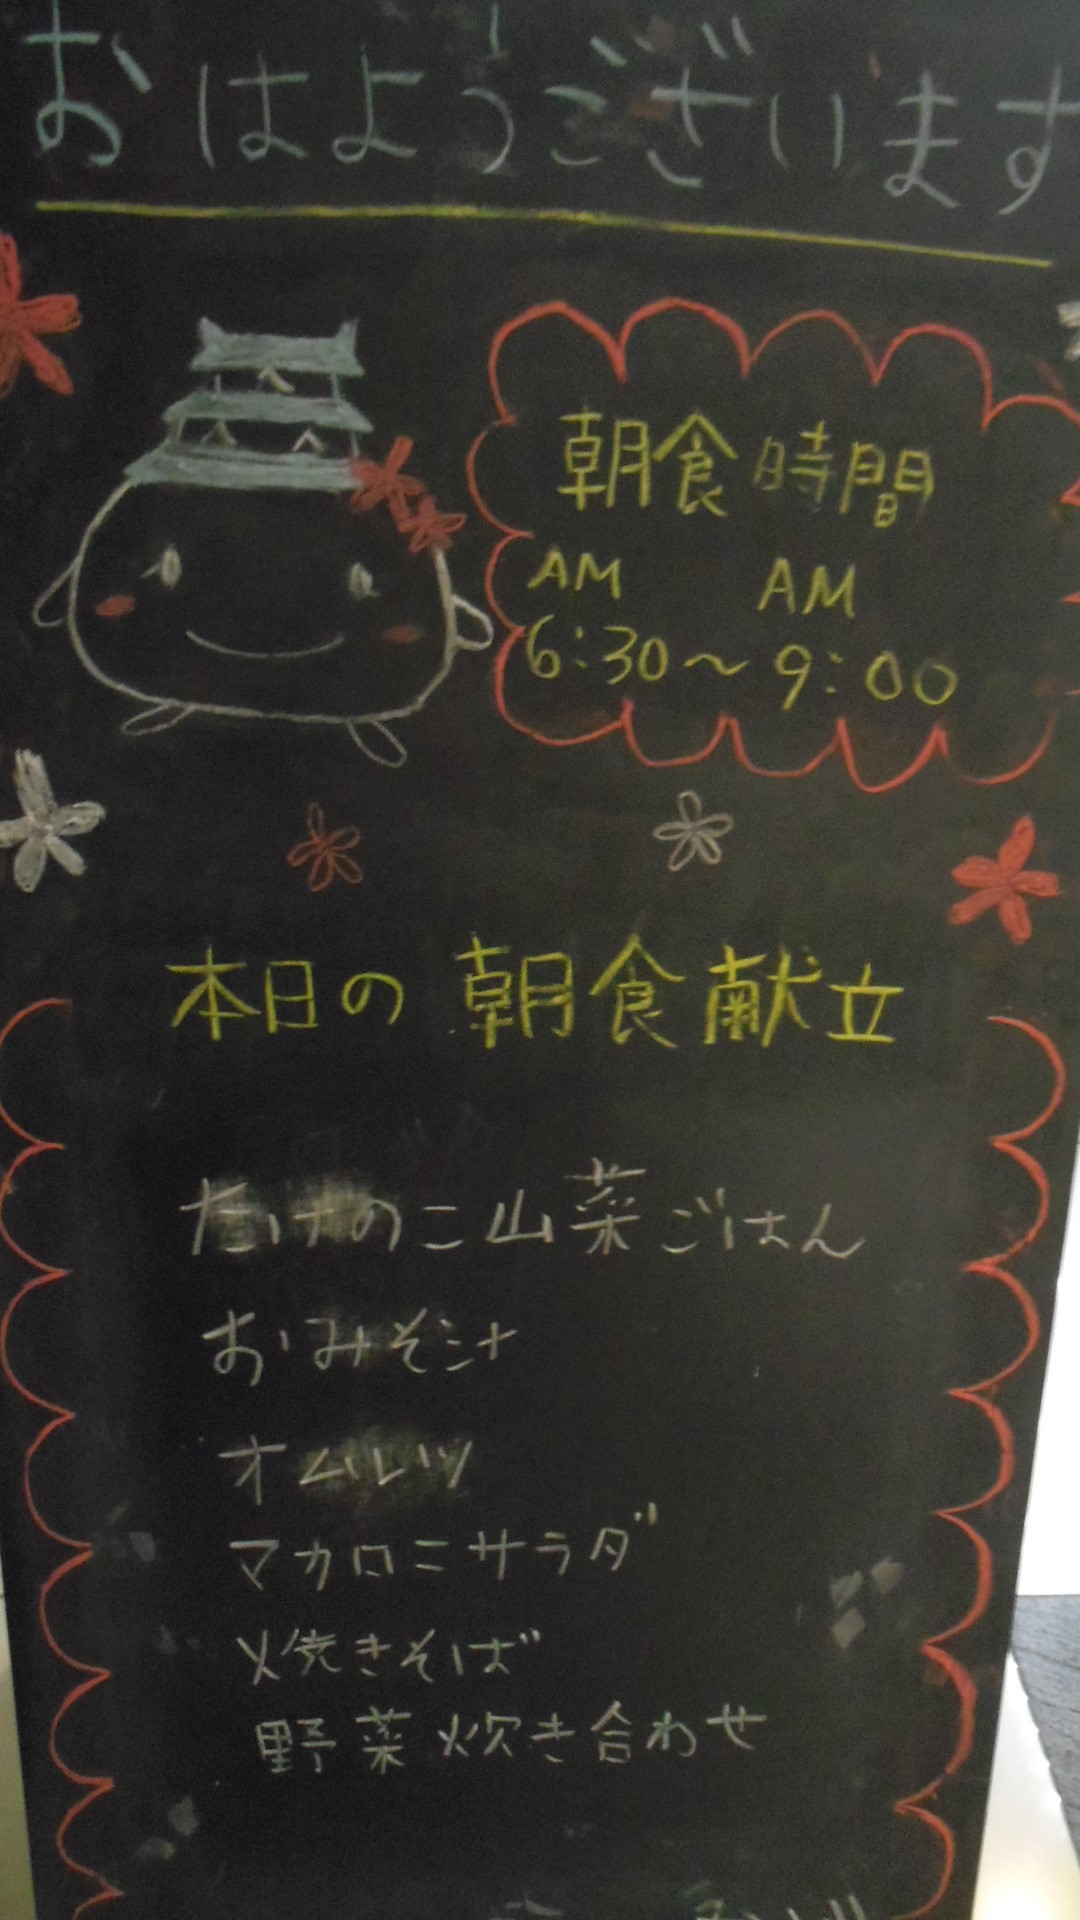 おはようございます
朝食時間
AM AM
6:30~9:00
本日の朝食献立
たけのこ山菜ごはん
おみそ汁
オムレツ
マカロニサラダ
焼きそば
野菜炊き合わせ